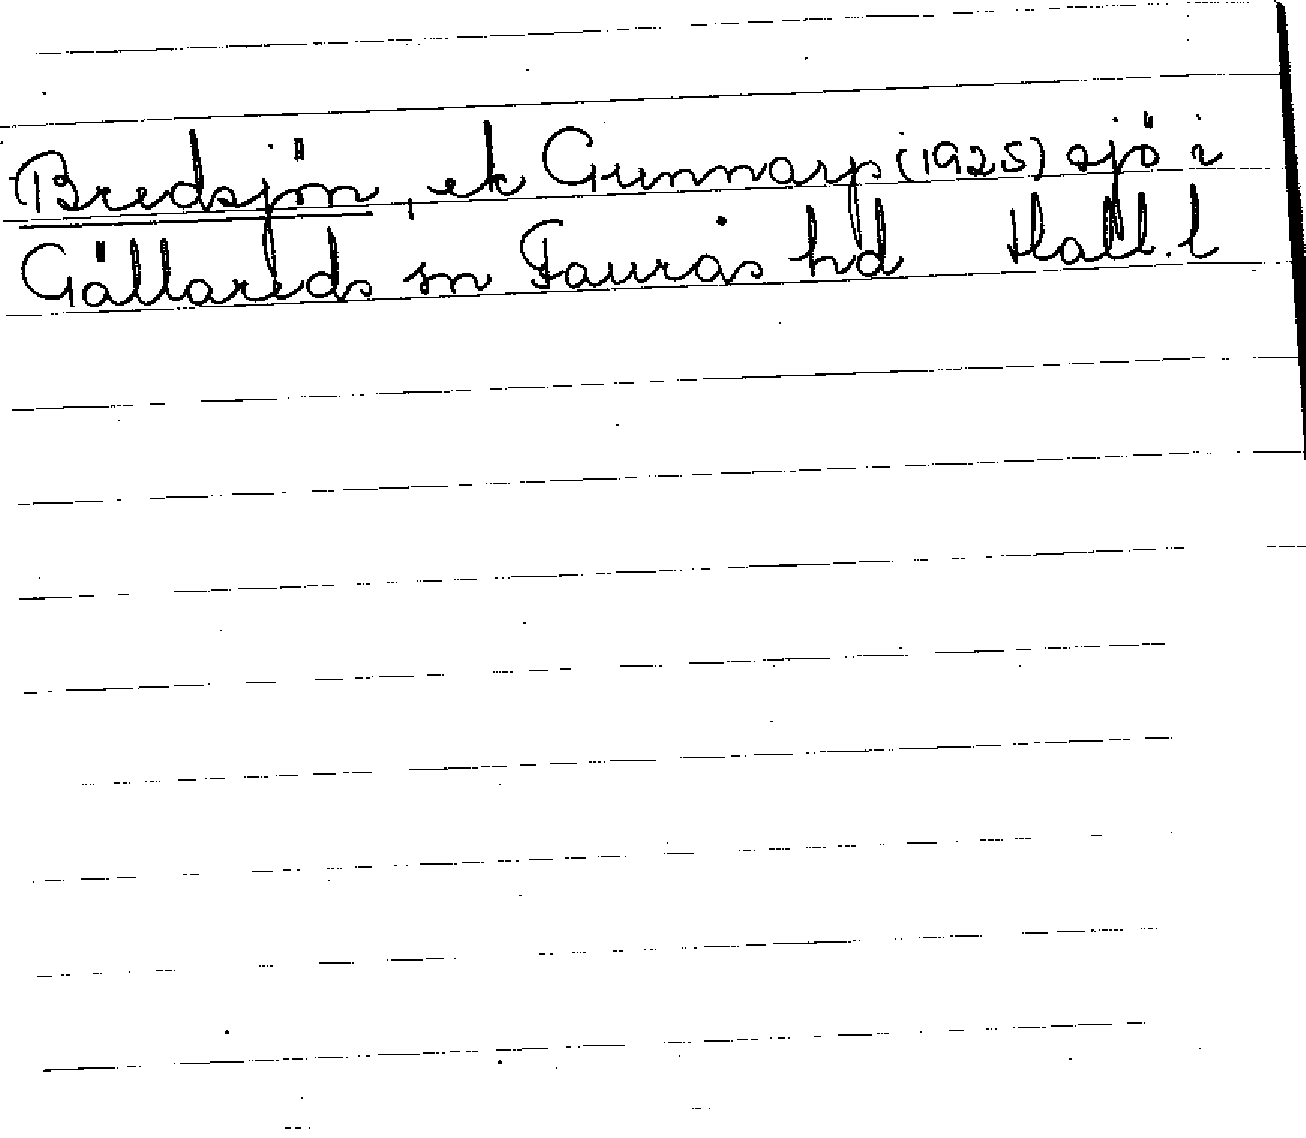 Bredsjön, ek Gunnarp (1925) sjö i
Gällareds sn Faurås hd Hall. l